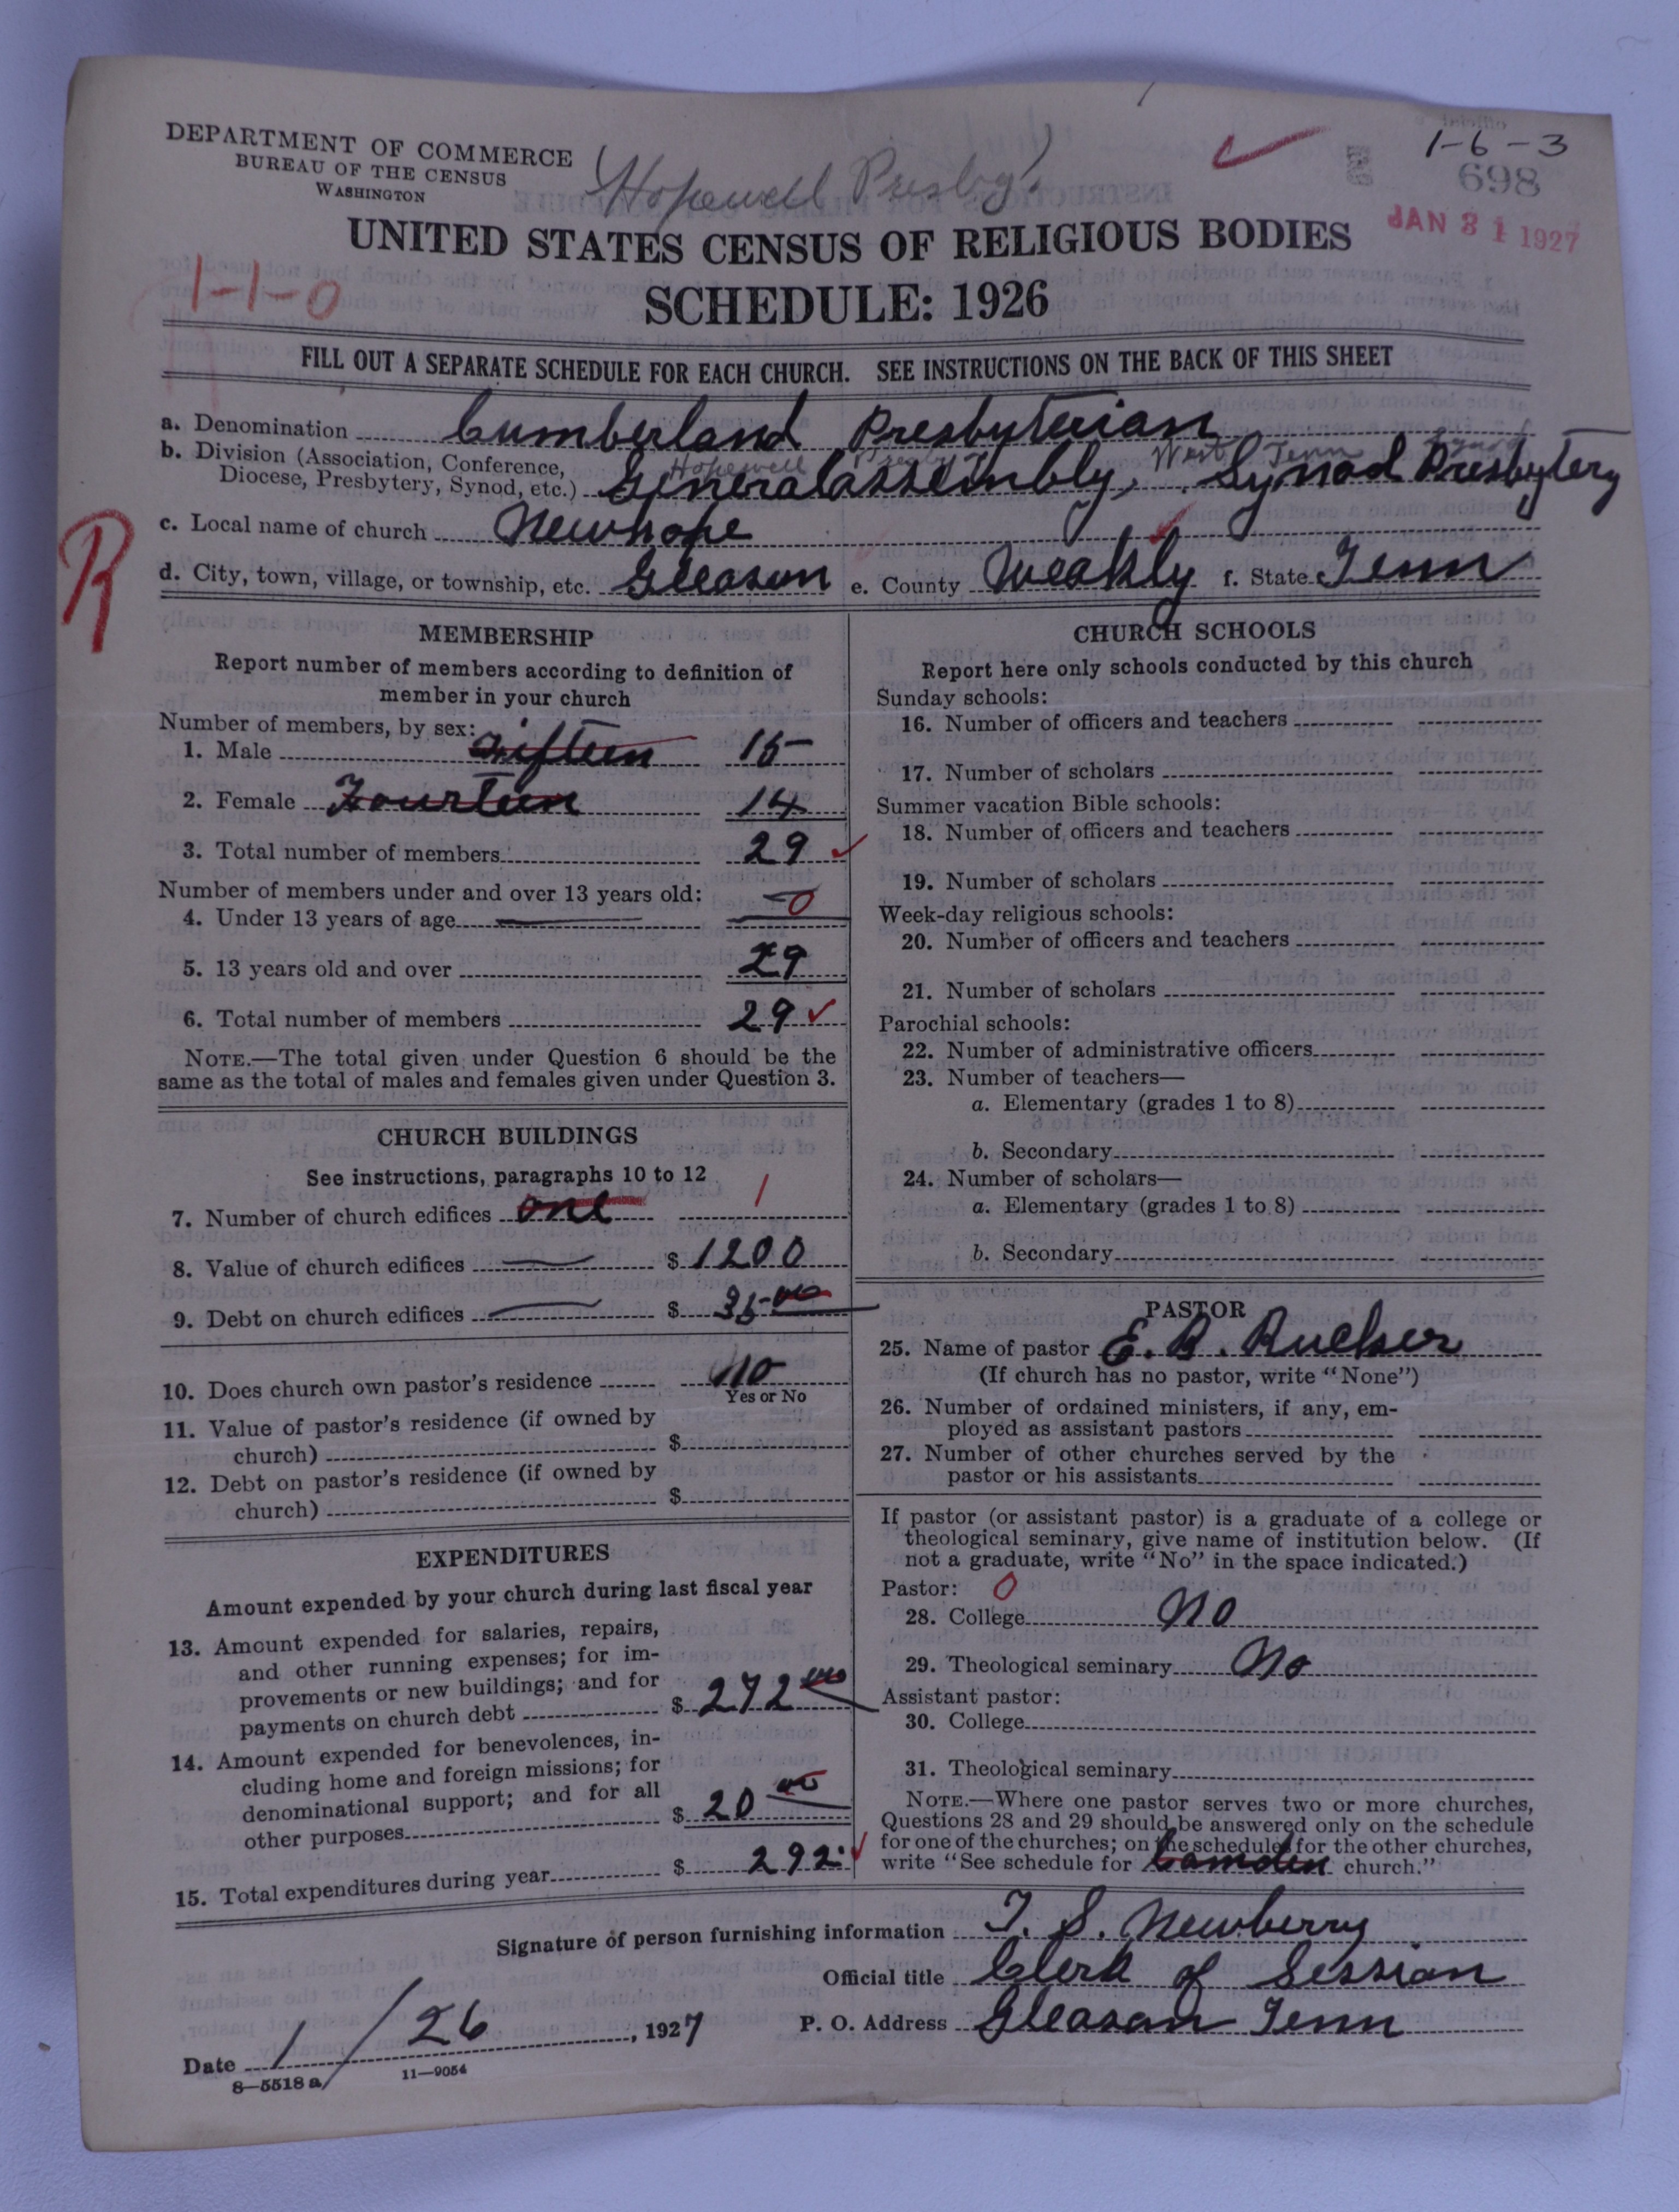 DEPARTMENT OF COMMERCE
BUREAU OF THE CENSUS
WASHINGTON
(Hopewell Presby.)
1-6-3
698
JAN 31 1927
UNITED STATES CENSUS OF RELIGIOUS BODIES
1-1-0
SCHEDULE: 1926
FILL OUT A SEPARATE SCHEDULE FOR EACH CHURCH. SEE INSTRUCTIONS ON THE BACK OF THIS SHEET
a. Denomination Cumberland Presbyterian
Hopewell Presby West Tenn Synod
b. Division (Association, Conference, Diocese, Presbytery, Synod, etc.) General assembly, Synod Presbytery
R
c. Local name of church Newhope
d. City, town, village, or township, etc. Gleason e. County Weakly f. State Tenn
MEMBERSHIP
Report number of members according to definition of
member in your church
Number of members, by sex:
1. Male fifteen 15
2. Female Fourteen 14
3. Total number of members 29
Number of members under and over 13 years old:
4. Under 13 years of age 0
5. 13 years old and over 29
6. Total number of members 29
NOTE.—The total given under Question 6 should be the
same as the total of males and females given under Question 3.
CHURCH BUILDINGS
See instructions, paragraphs 10 to 12
7. Number of church edifices one 1
8. Value of church edifices $ 1200
9. Debt on church edifices $ 35 00
10. Does church own pastor's residence no
Yes or No
11. Value of pastor's residence (if owned by
church) $
12. Debt on pastor's residence (if owned by
church) $
EXPENDITURES
Amount expended by your church during last fiscal year
13. Amount expended for salaries, repairs,
and other running expenses; for im-
provements or new buildings; and for
payments on church debt $ 272 00
14. Amount expended for benevolences, in-
cluding home and foreign missions; for
denominational support; and for all
other purposes $ 20 00
15. Total expenditures during year $ 292
CHURCH SCHOOLS
Report here only schools conducted by this church
Sunday schools:
16. Number of officers and teachers
17. Number of scholars
Summer vacation Bible schools:
18. Number of officers and teachers
19. Number of scholars
Week-day religious schools:
20. Number of officers and teachers
21. Number of scholars
Parochial schools:
22. Number of administrative officers
23. Number of teachers—
a. Elementary (grades 1 to 8)
b. Secondary
24. Number of scholars—
a. Elementary (grades 1 to 8)
b. Secondary
PASTOR
25. Name of pastor E. B. Rucker
(If church has no pastor, write "None")
26. Number of ordained ministers, if any, em-
ployed as assistant pastors
27. Number of other churches served by the
pastor or his assistants
If pastor (or assistant pastor) is a graduate of a college or
theological seminary, give name of institution below. (If
not a graduate, write "No" in the space indicated.)
Pastor: 0
28. College no
29. Theological seminary No
Assistant pastor:
30. College
31. Theological seminary
NOTE.—Where one pastor serves two or more churches,
Questions 28 and 29 should be answered only on the schedule
for one of the churches; on the schedules for the other churches,
write "See schedule for Camden church."
Signature of person furnishing information T. S. Newberry
Official title Clerk of Session
P. O. Address Gleason Tenn
Date 1/26, 1927
8—5518 a
11—9054